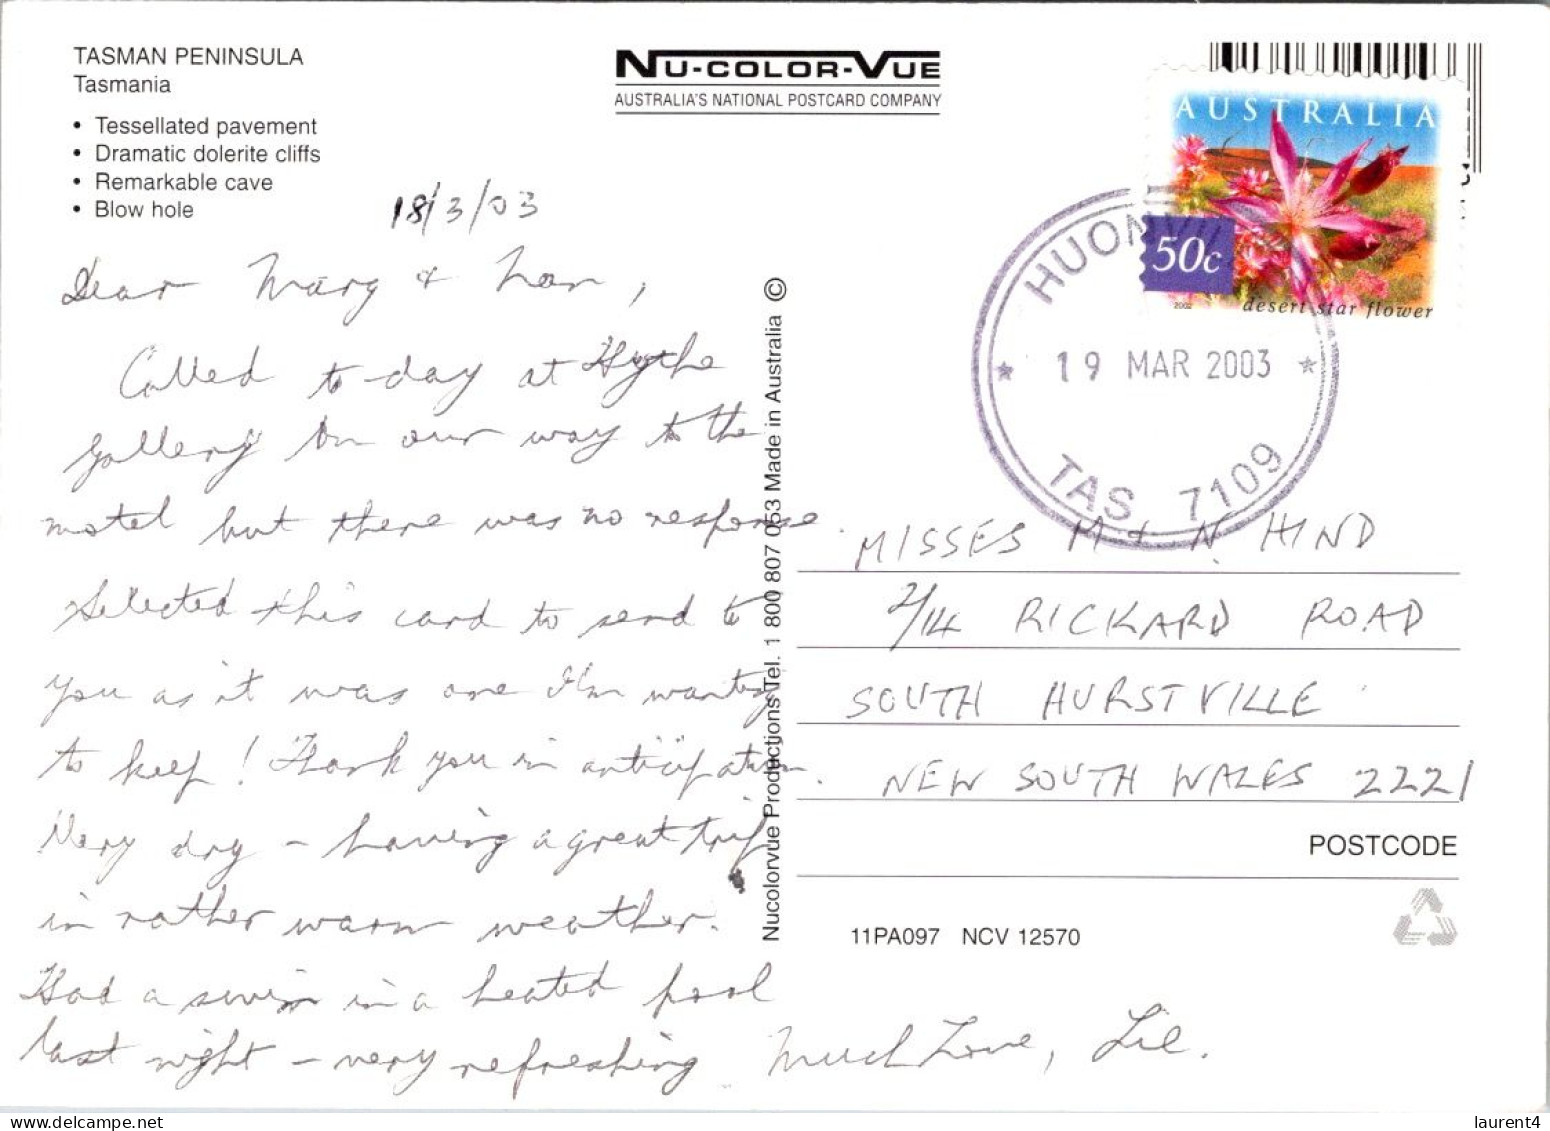 TASMAN PENINSULA
Tasmania
• Tessellated pavement
• Dramatic dolerite cliffs
• Remarkable cave
• Blow hole
NU-COLOR-VUE
AUSTRALIA'S NATIONAL POSTCARD COMPANY
AUSTRALIA
50c
2002
desert star flower
HUONVILLE
* 19 MAR 2003 *
TAS 7109
18/3/03
Dear Marg &
Called to-day at Hythe
Gallery on our way to the
motel but there was no response.
Selected this card to send to
you as it was one I'm wanting
to keep! Thank you in anticipation.
Very dry – having a great trip
in rather warm weather.
Had a swim in a heated pool
last night – very refreshing.
Much Love, Lil.
Nucolorvue Productions Tel. 1 800 807 053 Made in Australia ©
MISSES M & N HIND
2/14 RICKARD ROAD
SOUTH HURSTVILLE
NEW SOUTH WALES 2221
POSTCODE
11PA097 NCV 12570
laurent4